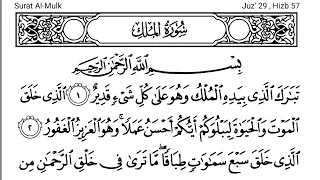 Surat Al-Mulk Juz' 29 , Hizb 57
سُورَةُ المُلْكِ
بِسْمِ اللَّهِ الرَّحْمَٰنِ الرَّحِيمِ
تَبَارَكَ الَّذِي بِيَدِهِ الْمُلْكُ وَهُوَ عَلَىٰ كُلِّ شَيْءٍ قَدِيرٌ ١ الَّذِي خَلَقَ
الْمَوْتَ وَالْحَيَوٰةَ لِيَبْلُوَكُمْ أَيُّكُمْ أَحْسَنُ عَمَلًا ۚ وَهُوَ الْعَزِيزُ الْغَفُورُ ٢
الَّذِي خَلَقَ سَبْعَ سَمَٰوَٰتٍ طِبَاقًا ۖ مَّا تَرَىٰ فِي خَلْقِ الرَّحْمَٰنِ مِن